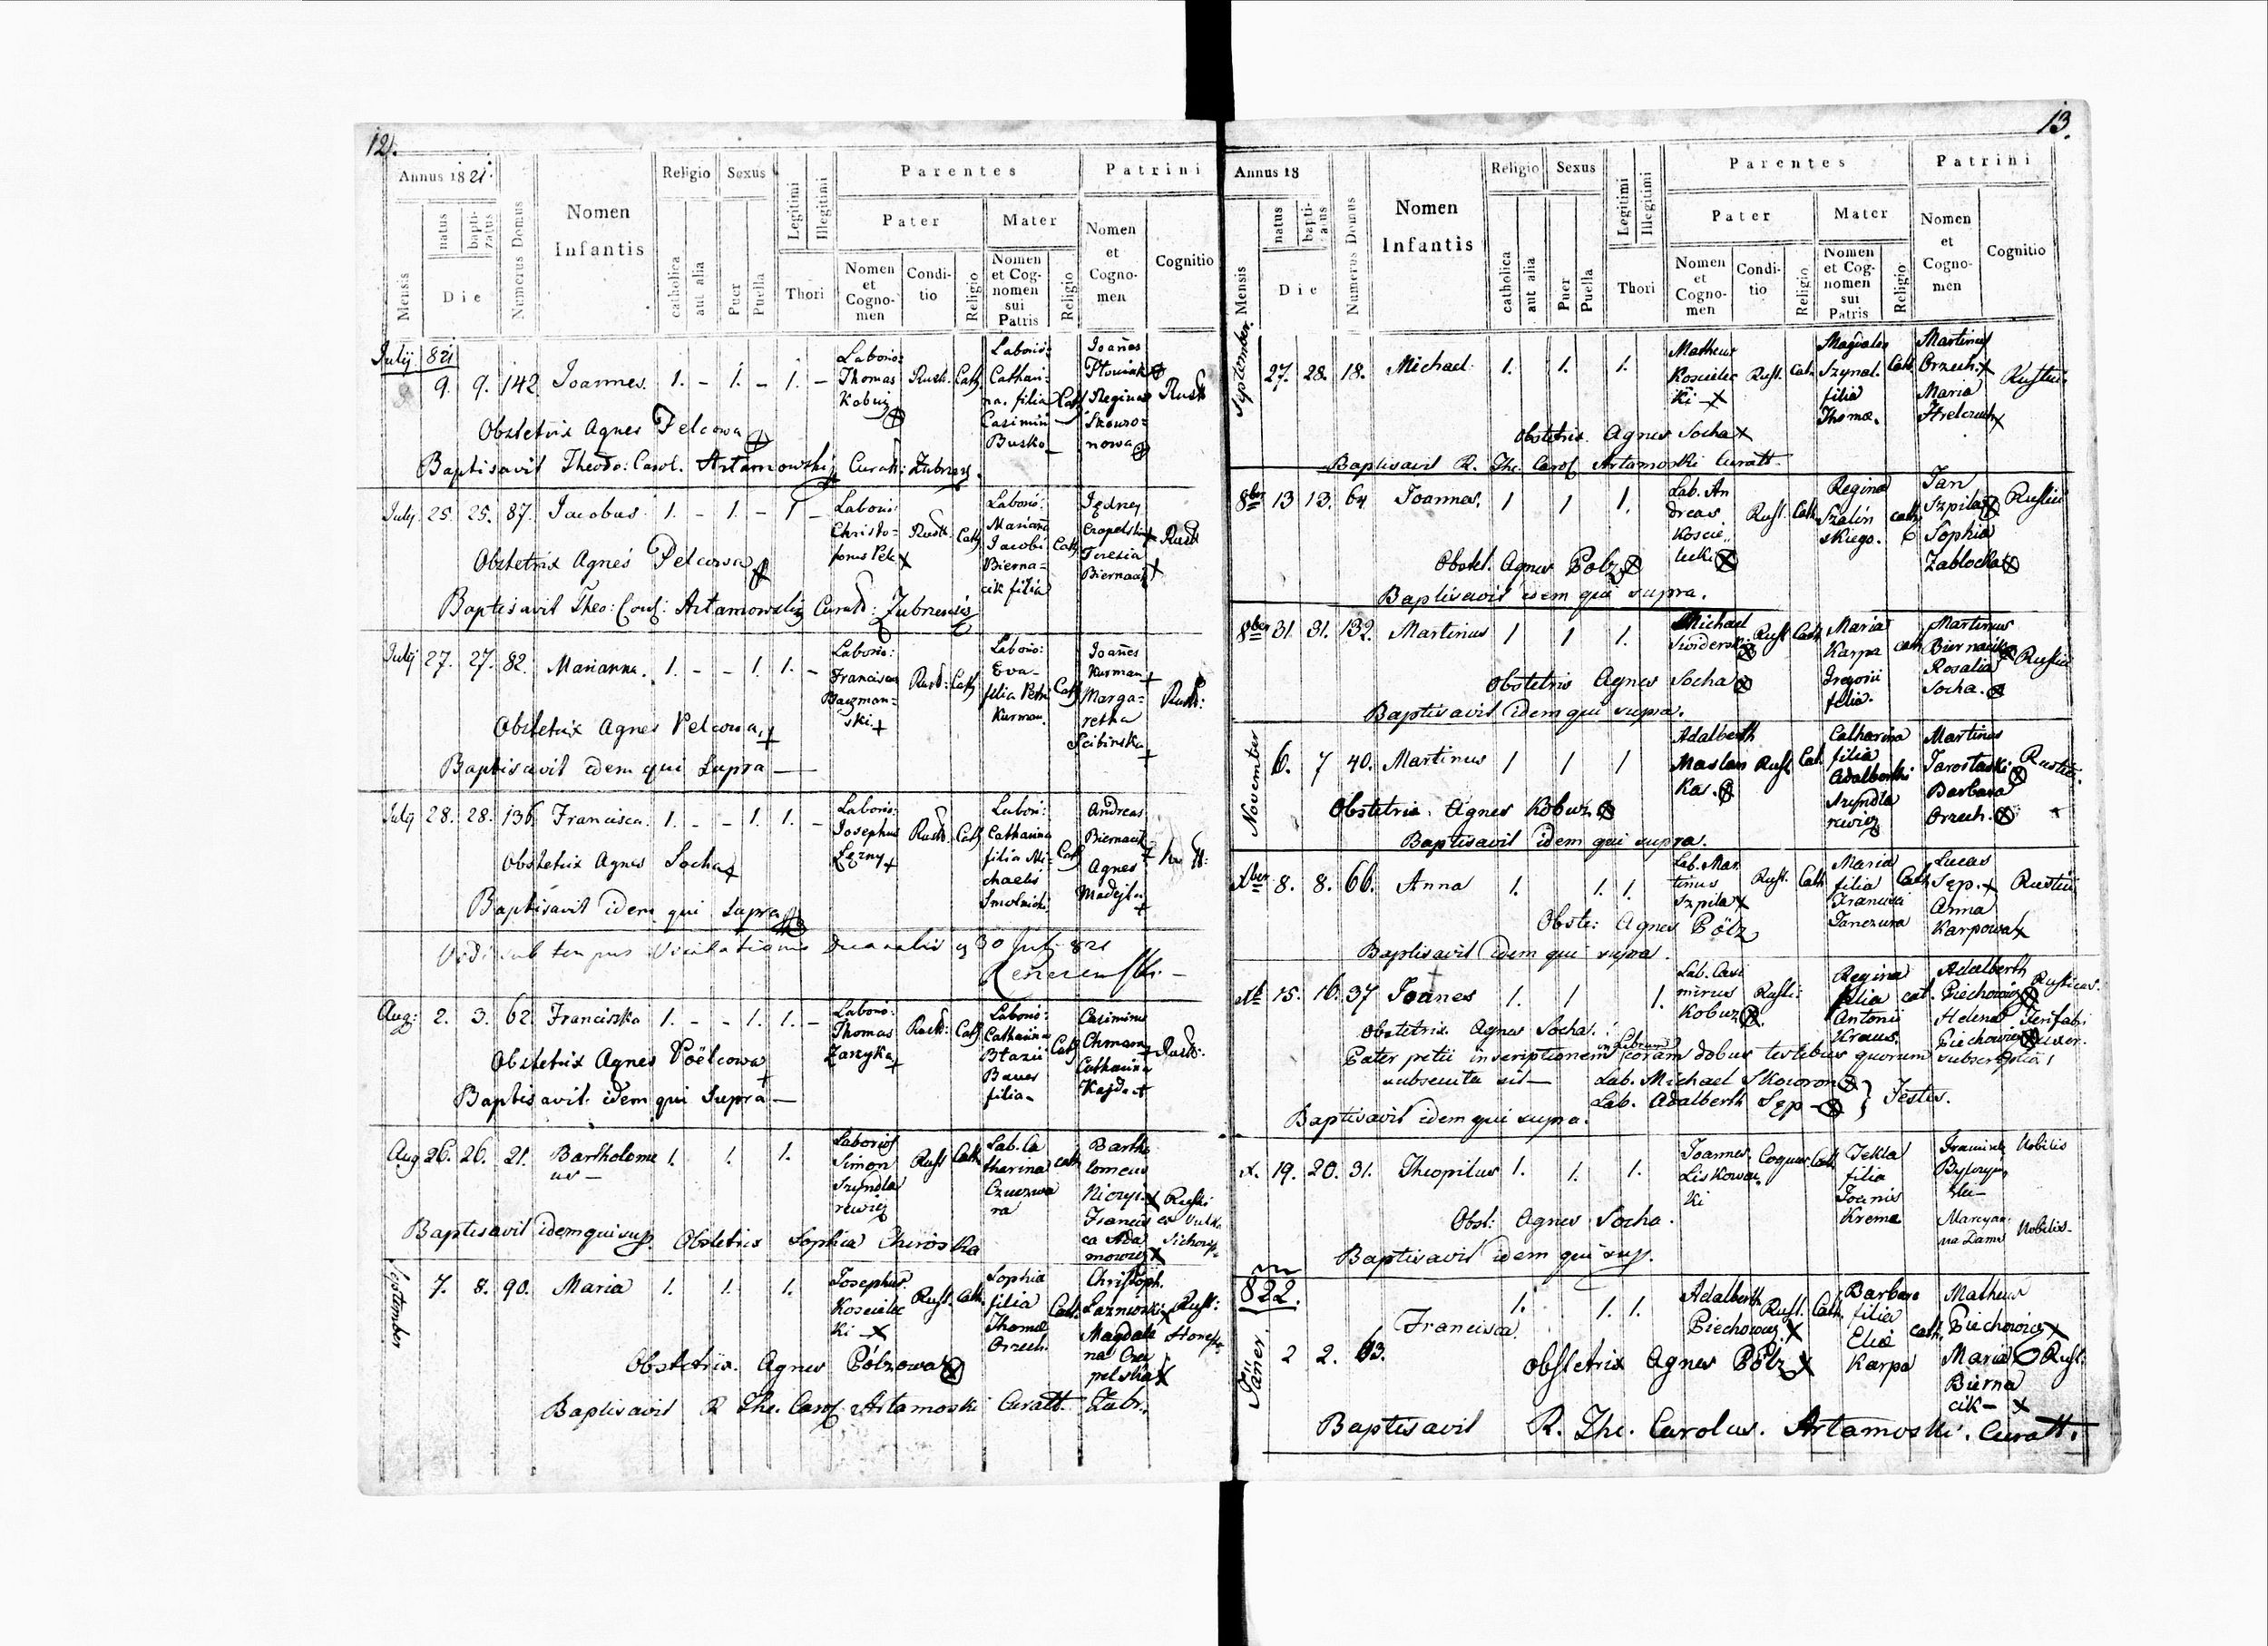 12.
Annus 1821.
Mensis
natus
bapti-
zatus
Die
Numerus Domus
Nomen
Infantis
Religio
catholica
aut alia
Sexus
Puer
Puella
Legitimi
Illegitimi
Thori
Parentes
Pater
Nomen
et
Cogno-
men
Condi-
tio
Religio
Mater
Nomen
et Cog-
nomen
sui
Patris
Religio
Patrini
Nomen
et
Cogno-
men
Cognitio
July 821
9. 9. 142 Joannes. 1. - 1. - 1. -
Laborio:
Thomas
Kobuz
Rust. Cath
Laborio:
Cathari-
na. filia
Casimiri
Busko
Cath
Joañes
Reginа
Skowro-
nowa
Rust
Obstetrix Agnes Pelcowa
Baptisavit Theodo: Carol. Artamowski Curatt: Zubrzens.
July 25. 25. 87. Jacobus 1. - 1. - 1 -
Labori
Christo-
forus Pelc
Rust. Cath
Laborio:
Marianna
Jacobi
Bierna-
cik filia
Cath
Jędrzej
Czapelski
Teresia
Biernacik
Rust
Obstetrix Agnes Pelcowa
Baptisavit Theo: Carol: Artamowski Curatt: Zubrzensis
July 27. 27. 82. Marianna. 1. - - 1. 1. -
Laborio:
Franciscus
ski
Rust: Cath
Laborio:
Eva
filia Petri
Kurman.
Cath
Joañes
Kurman
Marga-
retha
Scibinska
Rust:
Obstetrix Agnes Pelcowa
Baptisavit idem qui Supra
July 28. 28. 136 Francisca. 1. - - 1. 1. -
Laborio:
Josephus
Rust. Cath
Labori:
Catharina
filia Mi-
chaelis
Smolnicki
Cath
Andreas
Biernacik
Agnes
Obstetrix Agnes Socha
Baptisavit idem qui Supra
Vidi sub tempus Visitationis Decanalis 30 July 821
Aug: 2. 3. 62 Franciska 1. - - 1. 1. -
Laborio:
Thomas
Zarzyka
Rust: Cath
Laborio:
Catharina
Blazii
Bauer
filia
Cath
Casimirus
Chman
Catharina
Kajda
Rust.
Obstetrix Agnes Pöëlcowa
Baptisavit idem qui Supra
Aug 26. 26. 21. Bartholome
us
1. 1. 1.
Simon
Szyndla
rewicz
Rust Cath
Lab. Ca
tharina
ra
cath
Bartho
lomeus
Francis
ca Ada
mowicz
Baptisavit idem qui sup. Obstetrix Sophia Chiroska
September
7. 8. 90. Maria 1. 1. 1.
Josephus
Koscielec
ki
Rust. Cath.
Sophia
filia
Thomæ
Orzech.
Cath.
Christoph.
Magdale
na Cza
pelska
Rust:
Obstetrix. Agnes Pólzowa
Baptisavit R The. Carol. Artamoski Curatt. Zubr.
13.
Annus 18
Mensis
natus
bapti-
zatus
Die
Numerus Domus
Nomen
Infantis
Religio
catholica
aut alia
Sexus
Puer
Puella
Legitimi
Illegitimi
Thori
Parentes
Pater
Nomen
et
Cogno-
men
Condi-
tio
Religio
Mater
Nomen
et Cog-
nomen
sui
Patris
Religio
Patrini
Nomen
et
Cogno-
men
Cognitio
September.
27. 28. 18. Michael 1. 1. 1.
Matheus
Koscielec
ki
Rust. Cat.
Magdalena
Szynal.
filia
Thomæ.
Cath
Martinus
Orzech.
Maria
Strelczuch
Rustici
Obstetrix Agnes Socha
Baptisavit R. The. Carol Artamoski Curatt.
8ber 13 13. 64 Joannes. 1 1 1.
Lab. An
dreas
Koscie
lecki
Rust. Cath
Regina
Szalin
skiego.
cath
Jan
Szpila
Sophia
Zablocka
Rustici
Obstet. Agnes Pölz
Baptisavit idem qui supra.
8ber 31. 31. 132. Martinus 1 1 1.
Michael
Swiderski
Rust. Cath
Maria
Karpa
Gregorii
filia.
cath
Martinus
Biernacik
Rosalia
Socha.
Rustici
Obstetrix Agnes Socha
Baptisavit idem qui supra.
November
6. 7 40. Martinus 1 1 1
Adalberth
Maslan
Kas.
Rust. Cat.
Catharina
filia
Adalberthi
Szyndla
rewicz
Martinus
Jaroslaski
Barbara
Orzech.
Rustici.
Obstetrix. Agnes Kobuz
Baptisavit idem qui supra.
Xber 8. 8. 66. Anna 1. 1. 1.
Lab. Mar
tinus
Szpila
Rust. Cath
Maria
filia
Francisci
Janczura
Cath
Lucas
Sęp.
Anna
Karpowa
Rustici
Obste: Agnes Pölz
Baptisavit idem qui supra.
Xb 15. 16. 37 Joanes 1. 1 1.
Lab. Casi
mirus
Kobuz
Rusti:
Regina
filia
Antonii
Kraus.
cat.
Adalberth
Piechowicz
Helena
Piechowicz
Rusticus.
uxor.
Obstetrix Agnes Socha.
Pater petii inscriptionem in librum coram dobus testibus quorum subscriptia
subsecuta sit
Lab. Michael Skowron
Lab. Adalberth Sęp
} Testes.
Baptisavit idem qui supra.
X. 19. 20. 31. Theopilus 1. 1. 1.
Joannes
Liskowac
ki
Coquus Cath.
Tekla
filia
Joanis
Kreme
Nobilis
Nobilis
Obst: Agnes Socha.
Baptisavit idem qui sup.
822.
Jäner.
2 2. 63. Francisca. 1. 1. 1.
Adalberth
Piechowicz
Rust. Cath.
Barbara
filia
Eliæ
Karpa
cath.
Matheus
Piechowicz
Maria
Bierna
cik
Rust.
Obstetrix Agnes Pölz
Baptisavit R. The. Carolus. Artamoski. Curatt.